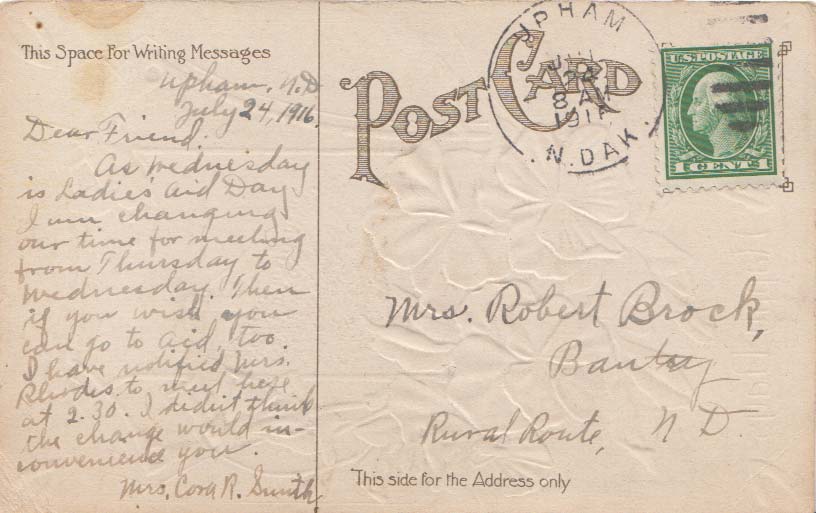 This Space For Writing Messages
Upham, N.D
July 24, 1916.
Dear Friend.
As Wednesday
is Ladies Aid Day
I am changing
our time for meeting
from Thursday to
Wednesday. Then
if you wish you
can go to aid, too.
I have notified Mrs.
Rhodes to meet here
at 2.30. I didn't think
the change would in-
convenience you.
Mrs. Cora R. Smith
POST CARD
UPHAM
24
8 AM
191
N. DAK.
U.S. POSTAGE
1 CENT 1
Mrs. Robert Brock,
Bantry
Rural Route, N D
This side for the Address only